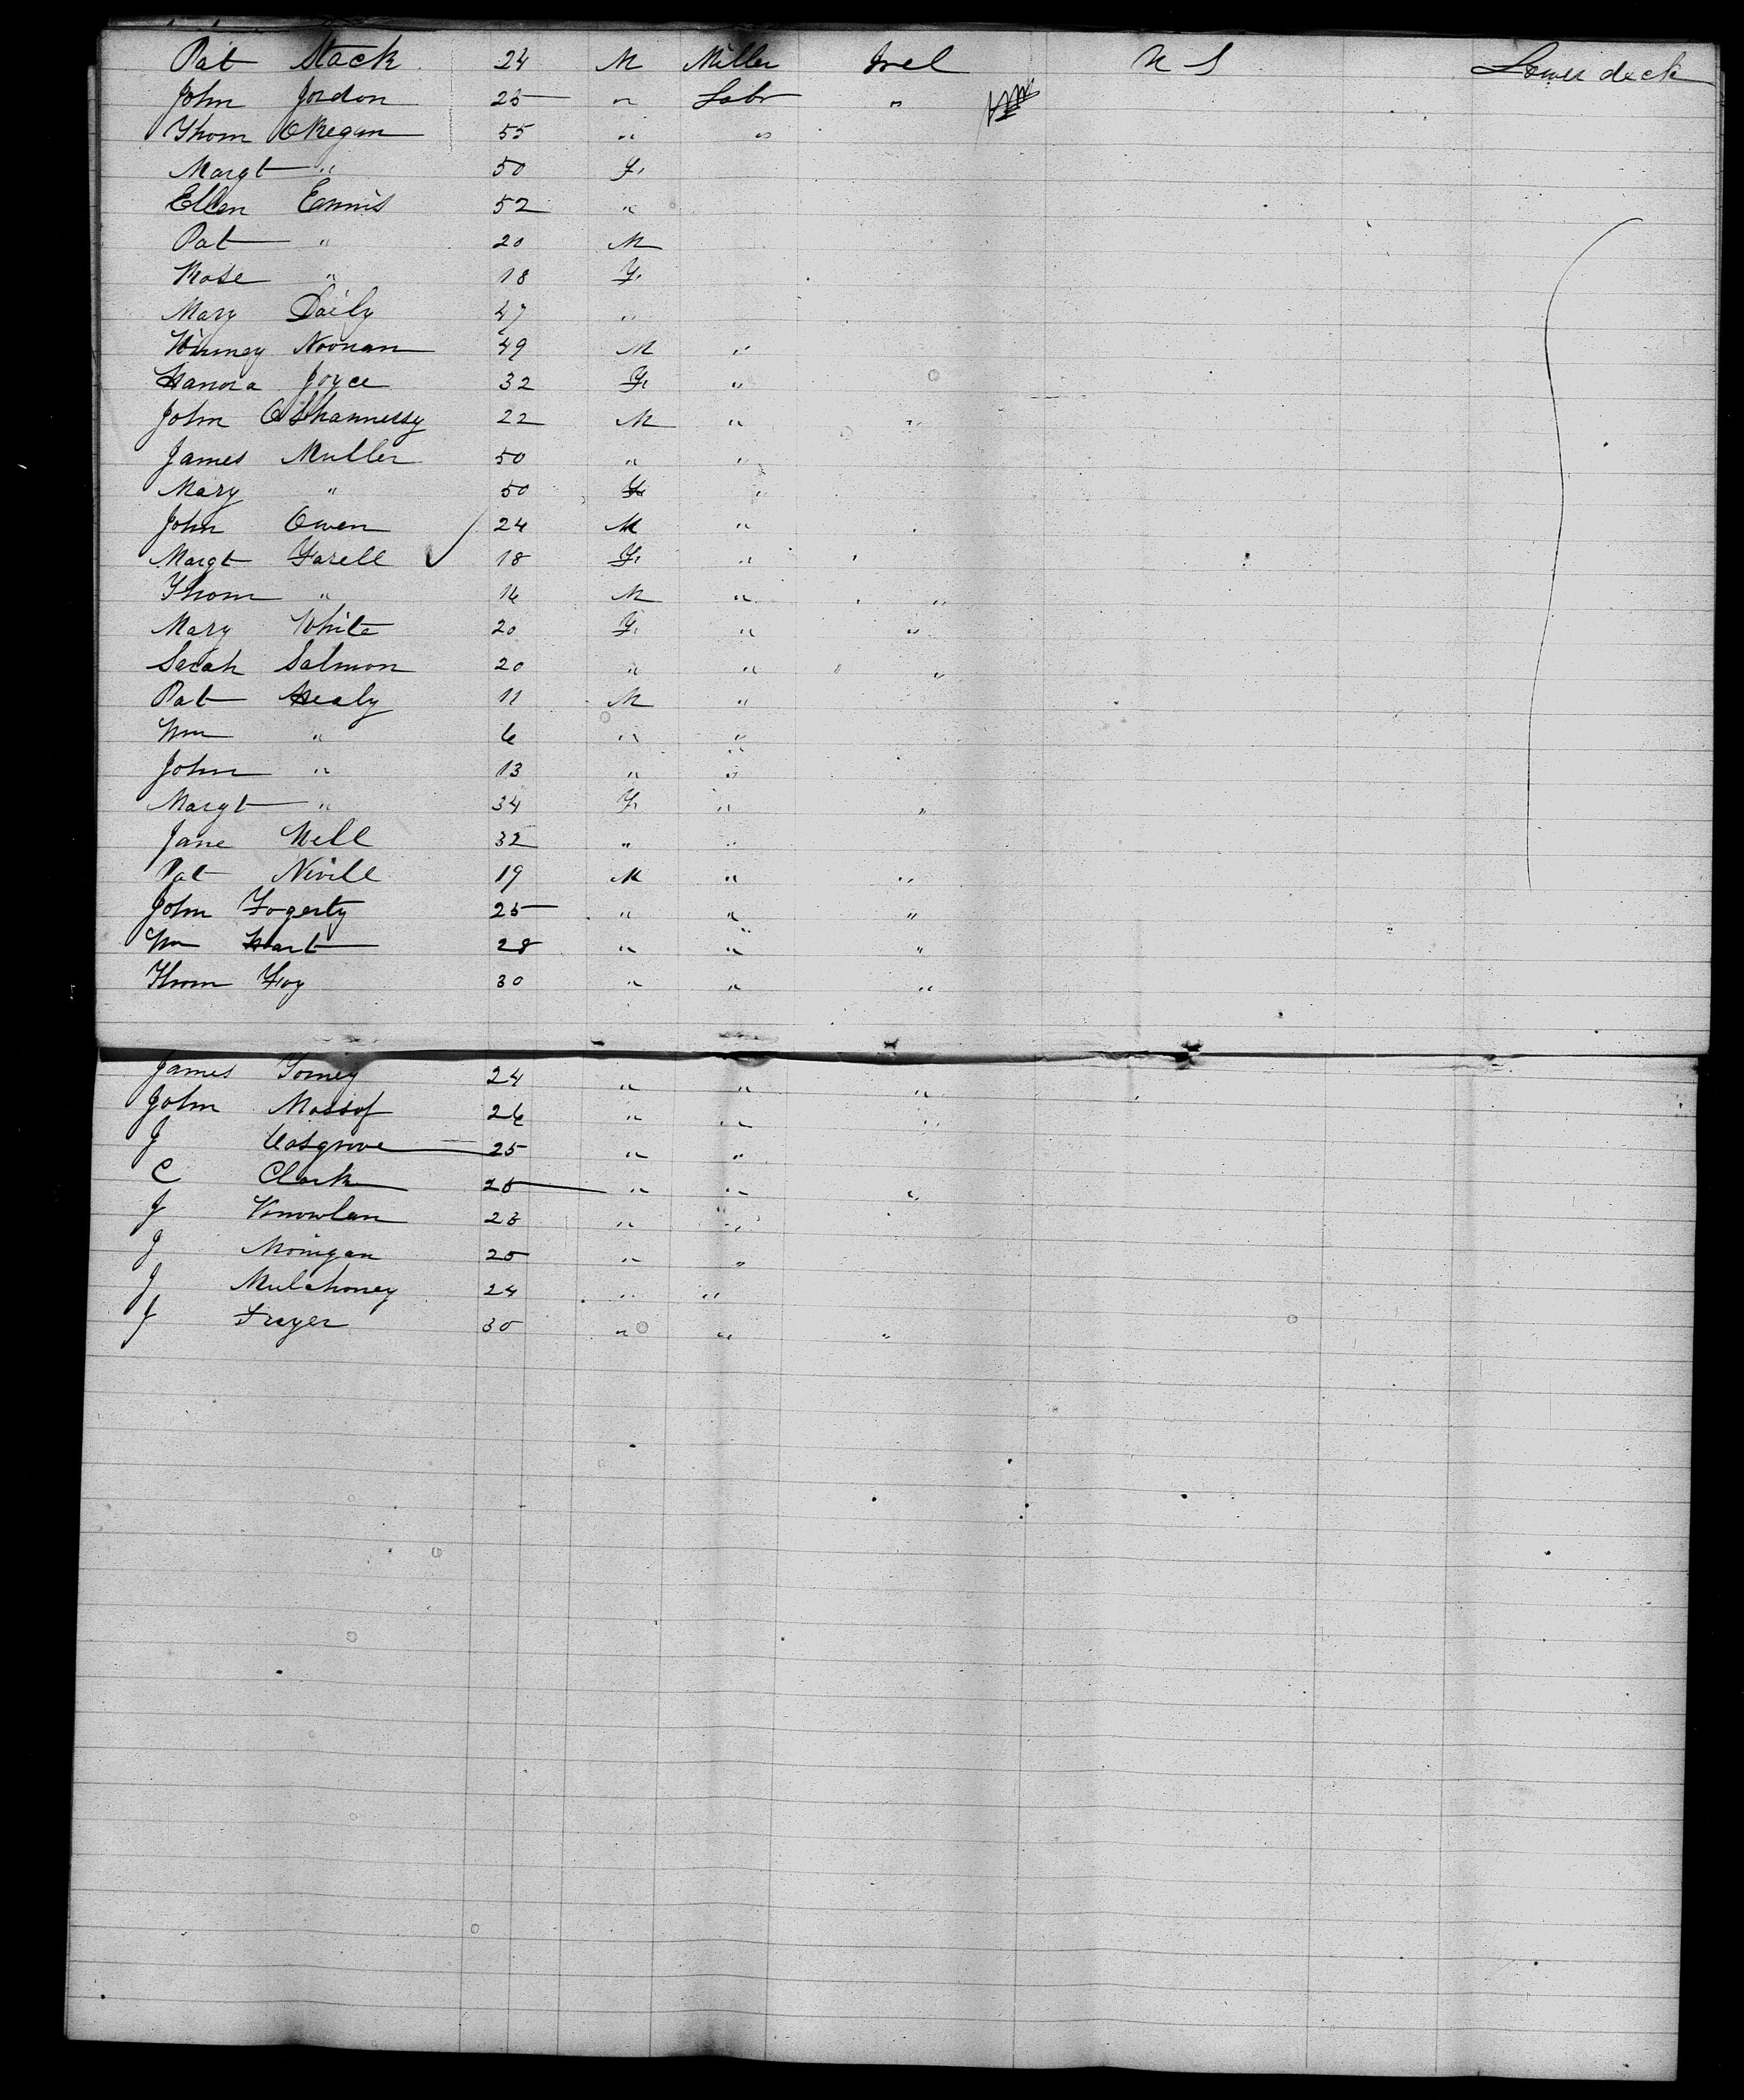 Pat Stack 24 M Miller Irel U S Lower deck
John Jordon 25 " Labr "
Thom OKegan 55 " "
Margt " 50 F.
Ellen Ennis 52 "
Pat " 20 M
Rose " 18 F.
Mary Daily 47 "
Winney Noonan 49 M "
Hanora Joyce 32 F. "
John OShannessy 22 M " "
James Muller 50 " "
Mary " 50 F. "
John Owen 24 M "
Margt Farell 18 F. "
Thom " 16 M " "
Mary White 20 F. " "
Sarah Salmon 20 " " "
Pat Healy 11 M "
Wm " 6 " "
John " 13 " "
Margt " 34 F. " "
Jane Nell 32 " "
Pat Nivill 19 M " "
John Fogerty 25 " " "
Wm Hart 28 " " "
Thom Foy 30 " " "
James 24 " " "
John Mossof 26 " " "
J Cosgrove 25 " "
C Clark 25 " " "
J Knowlan 23 " "
J 25 " "
J Mulchoney 24 " "
J Freyer 30 " " "